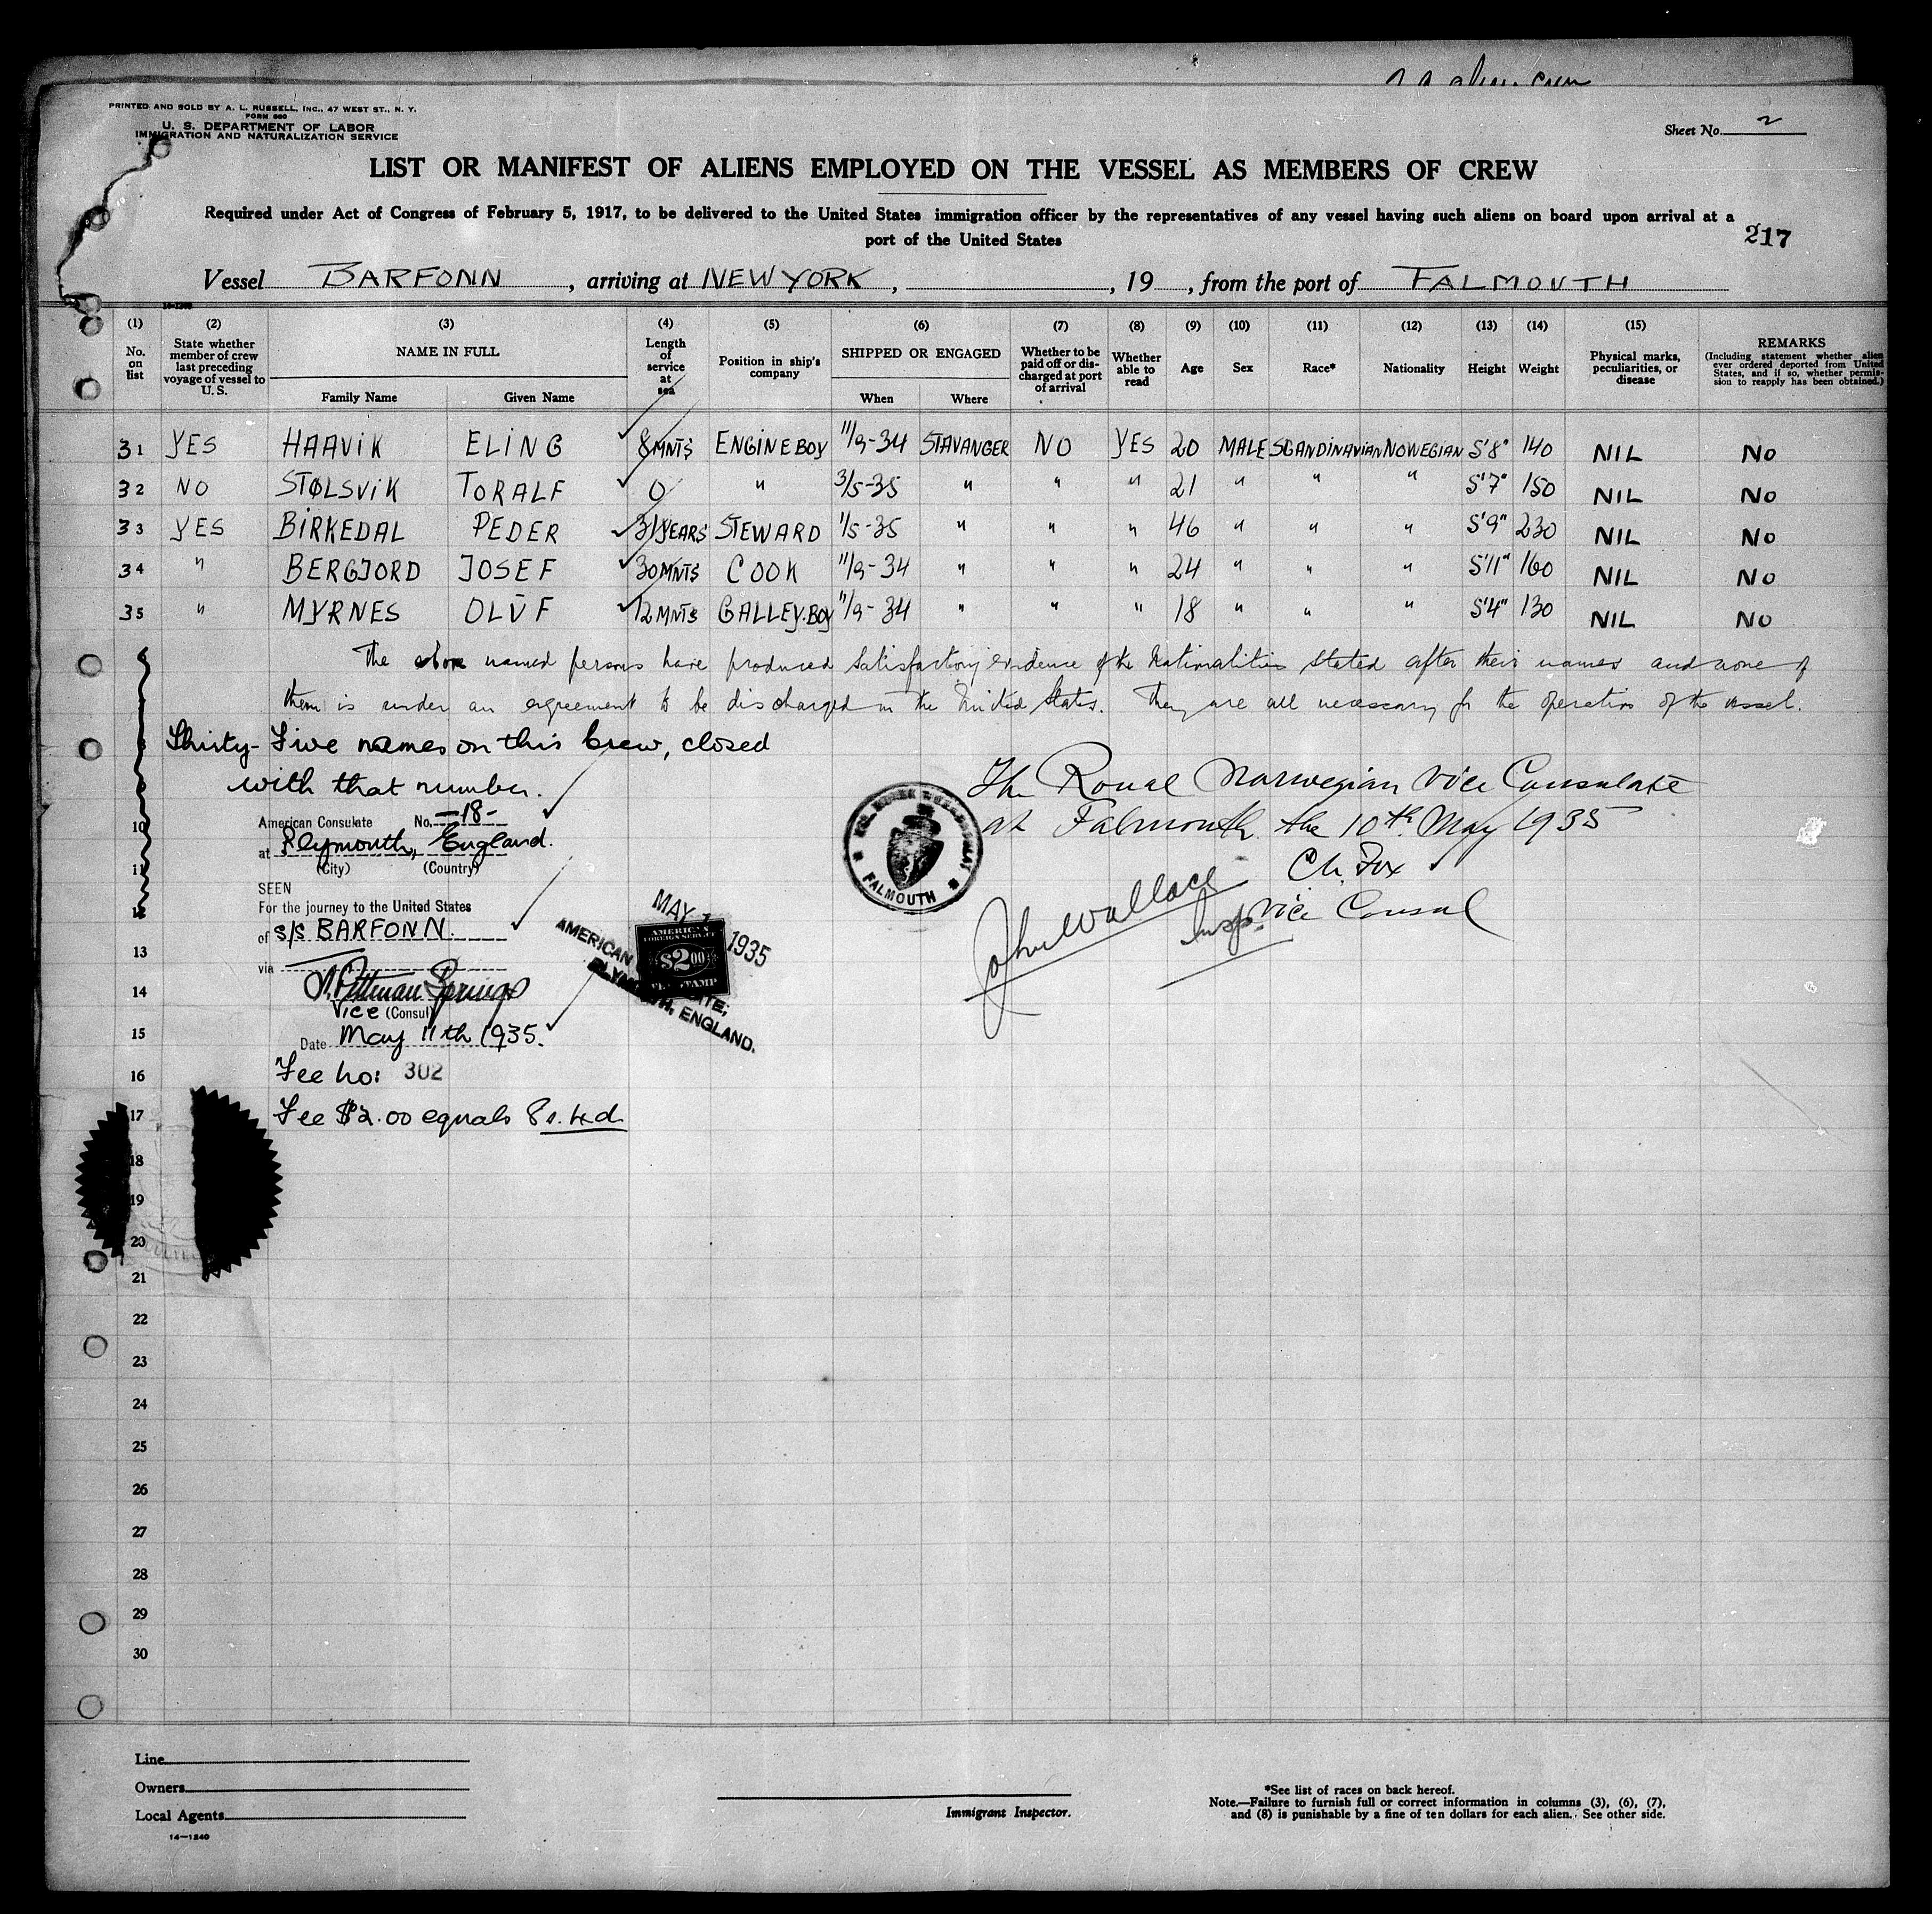 PRINTED AND SOLD BY A. L. RUSSELL, INC., 47 WEST ST., N. Y.
FORM 680
U. S. DEPARTMENT OF LABOR
IMMIGRATION AND NATURALIZATION SERVICE
Sheet No. 2
LIST OR MANIFEST OF ALIENS EMPLOYED ON THE VESSEL AS MEMBERS OF CREW
Required under Act of Congress of February 5, 1917, to be delivered to the United States immigration officer by the representatives of any vessel having such aliens on board upon arrival at a
port of the United States
217
Vessel BARFONN, arriving at NEW YORK, , 19 , from the port of FALMOUTH
(1) No. on list
(2) State whether member of crew last preceding voyage of vessel to U. S.
(3) NAME IN FULL Family Name Given Name
(4) Length of service at sea
(5) Position in ship's company
(6) SHIPPED OR ENGAGED When Where
(7) Whether to be paid off or discharged at port of arrival
(8) Whether able to read
(9) Age
(10) Sex
(11) Race*
(12) Nationality
(13) Height
(14) Weight
(15) Physical marks, peculiarities, or disease
REMARKS (Including statement whether alien ever ordered deported from United States, and if so, whether permission to reapply has been obtained.)
31 YES HAAVIK ELING 8 MNTS ENGINEBOY 11/9-34 STAVANGER NO YES 20 MALE SCANDINAVIAN NOWEGIAN 5'8" 140 NIL No
32 NO STØLSVIK TORALF 0 " 3/5-35 " " " 21 " " " 5'7" 150 NIL No
33 YES BIRKEDAL PEDER 31 YEARS STEWARD 1/5-35 " " " 46 " " " 5'9" 230 NIL No
34 " BERGJORD JOSEF 30 MNTS COOK 11/9-34 " " " 24 " " " 5'11" 160 NIL No
35 " MYRNES OLUF 12 MNTS GALLEY.BOY 11/9-34 " " " 18 " " " 5'4" 130 NIL No
The above named persons have produced satisfactory evidence of the nationalities stated after their names and none of
them is under an agreement to be discharged in the United States. They are all necessary for the operation of the vessel.
Thirty-Five names on this crew, closed
with that number.
American Consulate No. -18-
at Plymouth, England.
(City) (Country)
SEEN
For the journey to the United States
of s/s BARFONN.
via
Pittman Springs
Vice (Consul)
Date May 11th 1935.
Fee No: 302
Fee $2.00 equals 8s.4d
MAY 1935
AMERICAN
FOREIGN SERVICE
$2.00
FEE STAMP
PLYMOUTH, ENGLAND.
FALMOUTH
The Royal Norwegian Vice Consulate
at Falmouth the 10th May 1935
Ch. Fox
Vice Consul
John Wallace
Insp.
10
11
12
13
14
15
16
17
18
19
20
21
22
23
24
25
26
27
28
29
30
Line
Owners
Local Agents
14—1240
Immigrant Inspector.
*See list of races on back hereof.
Note.—Failure to furnish full or correct information in columns (3), (6), (7),
and (8) is punishable by a fine of ten dollars for each alien. See other side.